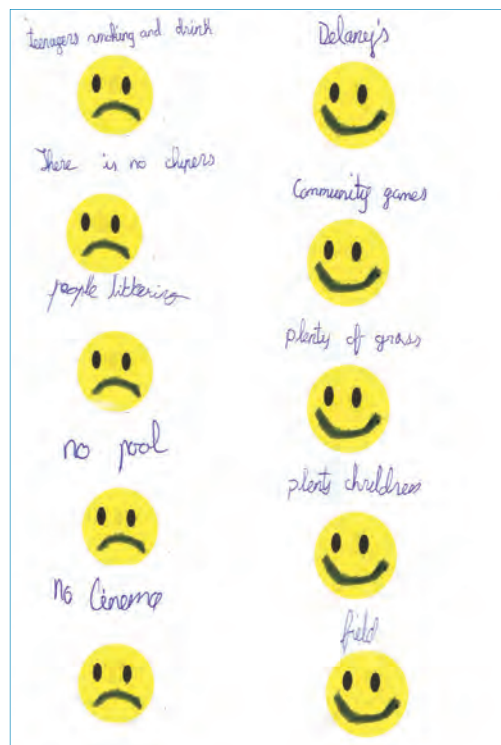 teenagers smoking and drink
There is no chipers
people littering
no pool
no Cinema
Delaney's
Community games
plenty of grass
plents childress
field